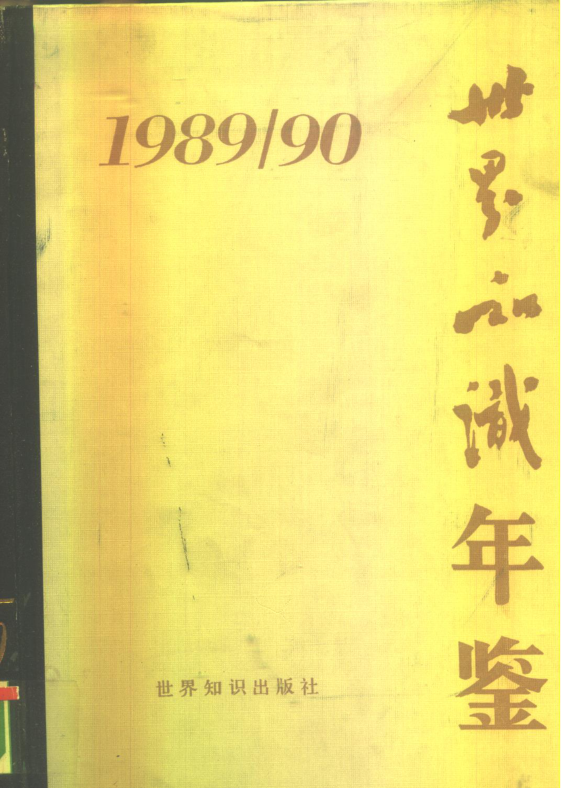 1989/90
世界知識年鉴
世界知识出版社